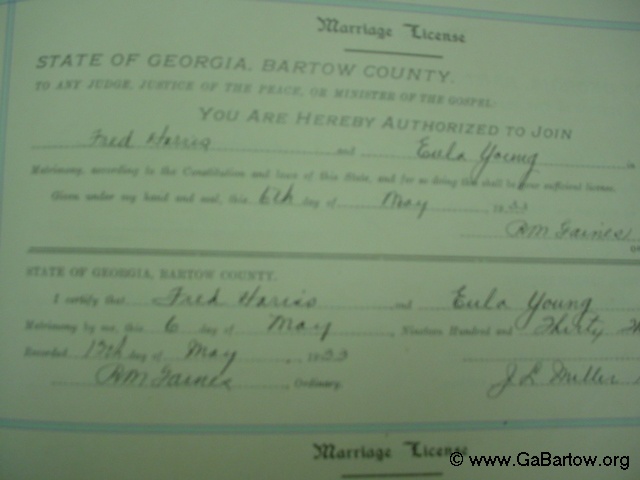 Marriage License
STATE OF GEORGIA, BARTOW COUNTY.
TO ANY JUDGE, JUSTICE OF THE PEACE, OR MINISTER OF THE GOSPEL:
YOU ARE HEREBY AUTHORIZED TO JOIN
Fred Harris and Eula Young in
Matrimony, according to the Constitution and laws of this State, and for so doing this shall be your sufficient license.
Given under my hand and seal, this 6th day of May 1933
RM Gaines
STATE OF GEORGIA, BARTOW COUNTY.
I certify that Fred Harris and Eula Young
Matrimony by me, this 6 day of May, Nineteen Hundred and Thirty
Recorded 17th day of May, 1933
RM Gaines Ordinary. J L Miller
Marriage License
© www.GaBartow.org